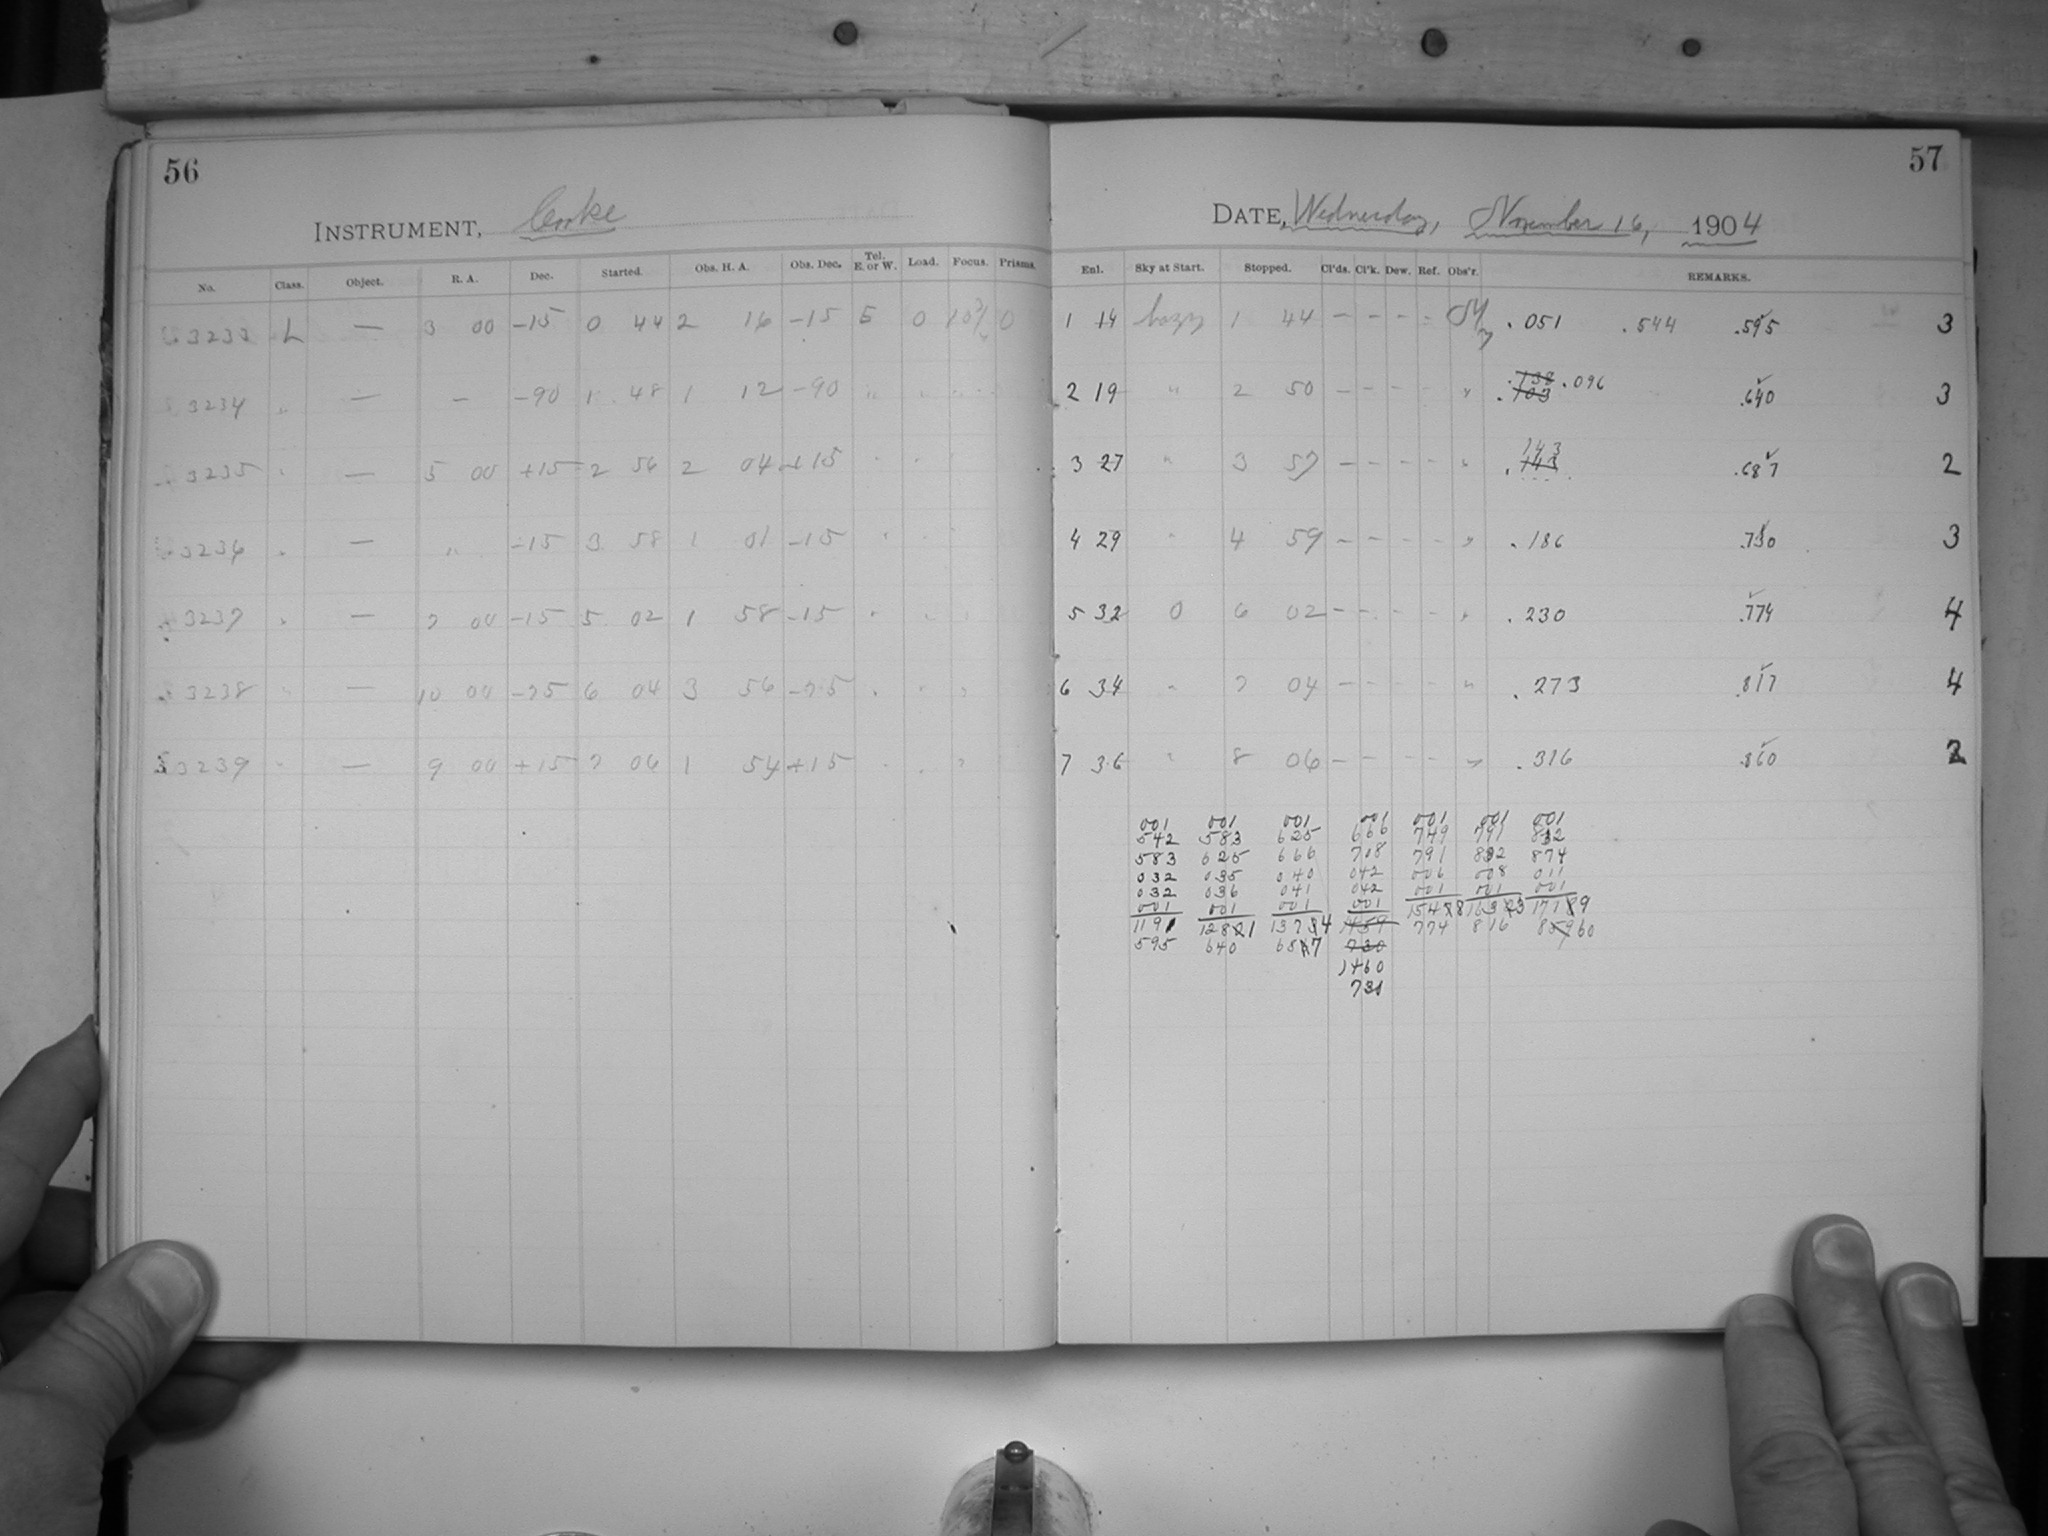 56
INSTRUMENT, Cooke
No. Class. Object. R. A. Dec. Started. Obs. H. A. Obs. Dec. Tel. E. or W. Load. Focus. Prisms.
3233 L — 3 00 -15 0 44 2 16 -15 E 0 0
3234 " — — -90 1 48 1 12 -90 " " "
3235 " — 5 00 +15 2 56 2 04 +15 " "
3236 " — " -15 3 58 1 01 -15 " "
3237 " — 7 00 -15 5 02 1 58 -15 " "
3238 " — 10 00 -75 6 04 3 56 -75 " " "
3239 " — 9 00 +15 7 06 1 54 +15 " " "
57
DATE, Wednesday, November 16, 1904
Enl. Sky at Start. Stopped. Cl'ds. Cl'k. Dew. Ref. Obs'r. REMARKS.
1 14 hazy 1 44 — — — — .051 .544 .595 3
2 19 " 2 50 — — — — " .138 .103 .096 .640 3
3 27 " 3 57 — — — — " 143 .143 .687 2
4 29 " 4 59 — — — — " .186 .730 3
5 32 0 6 02 — — — — " .230 .774 4
6 34 " 7 04 — — — — " .273 .817 4
7 36 " 8 06 — — — — " .316 .860 2
001 001 001 001 001 001 001
542 583 625 666 749 791 832
583 625 666 708 791 832 874
032 035 040 042 006 008 011
032 036 041 042 001 001 001
001 001 001 001 1548 1633 1719
1191 1281 1374 1459 774 816 860
595 640 687 730
1460
730